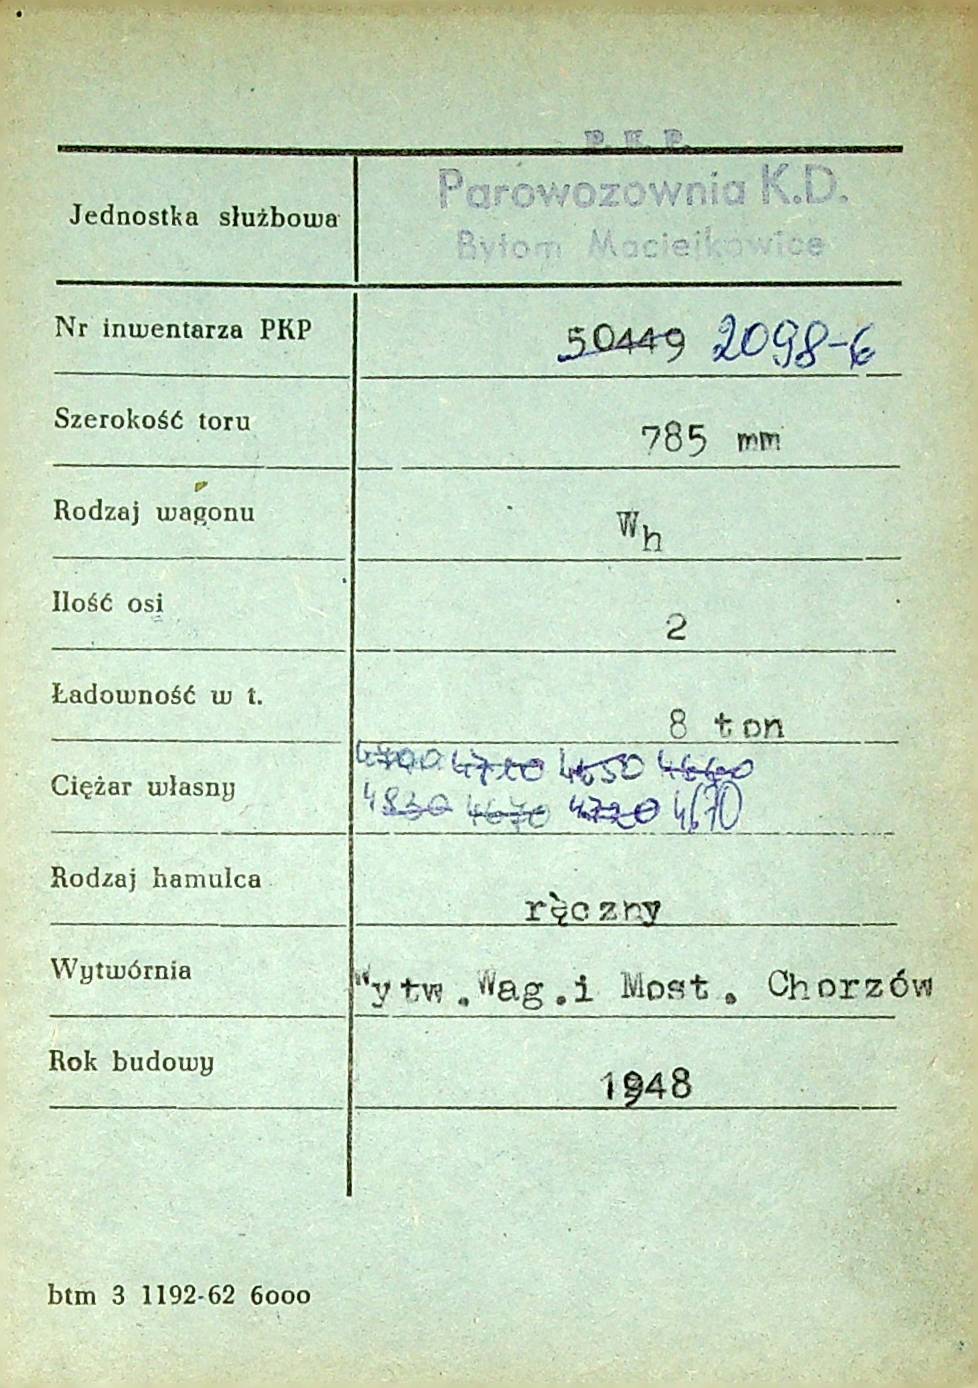 P. K. P.
Parowozownia K.D.
Jednostka służbowa
Bytom Maciejkowice
Nr inwentarza PKP 50449 2098-6
Szerokość toru 785 mm
Rodzaj wagonu Wh
Ilość osi 2
Ładowność w t. 8 ton
4700 4720 4650 4660
Ciężar własny 4830 4670 4720 4670
Rodzaj hamulca ręczny
Wytwórnia Wytw.Wag.i Most. Chorzów
Rok budowy 1948
btm 3 1192-62 6ooo